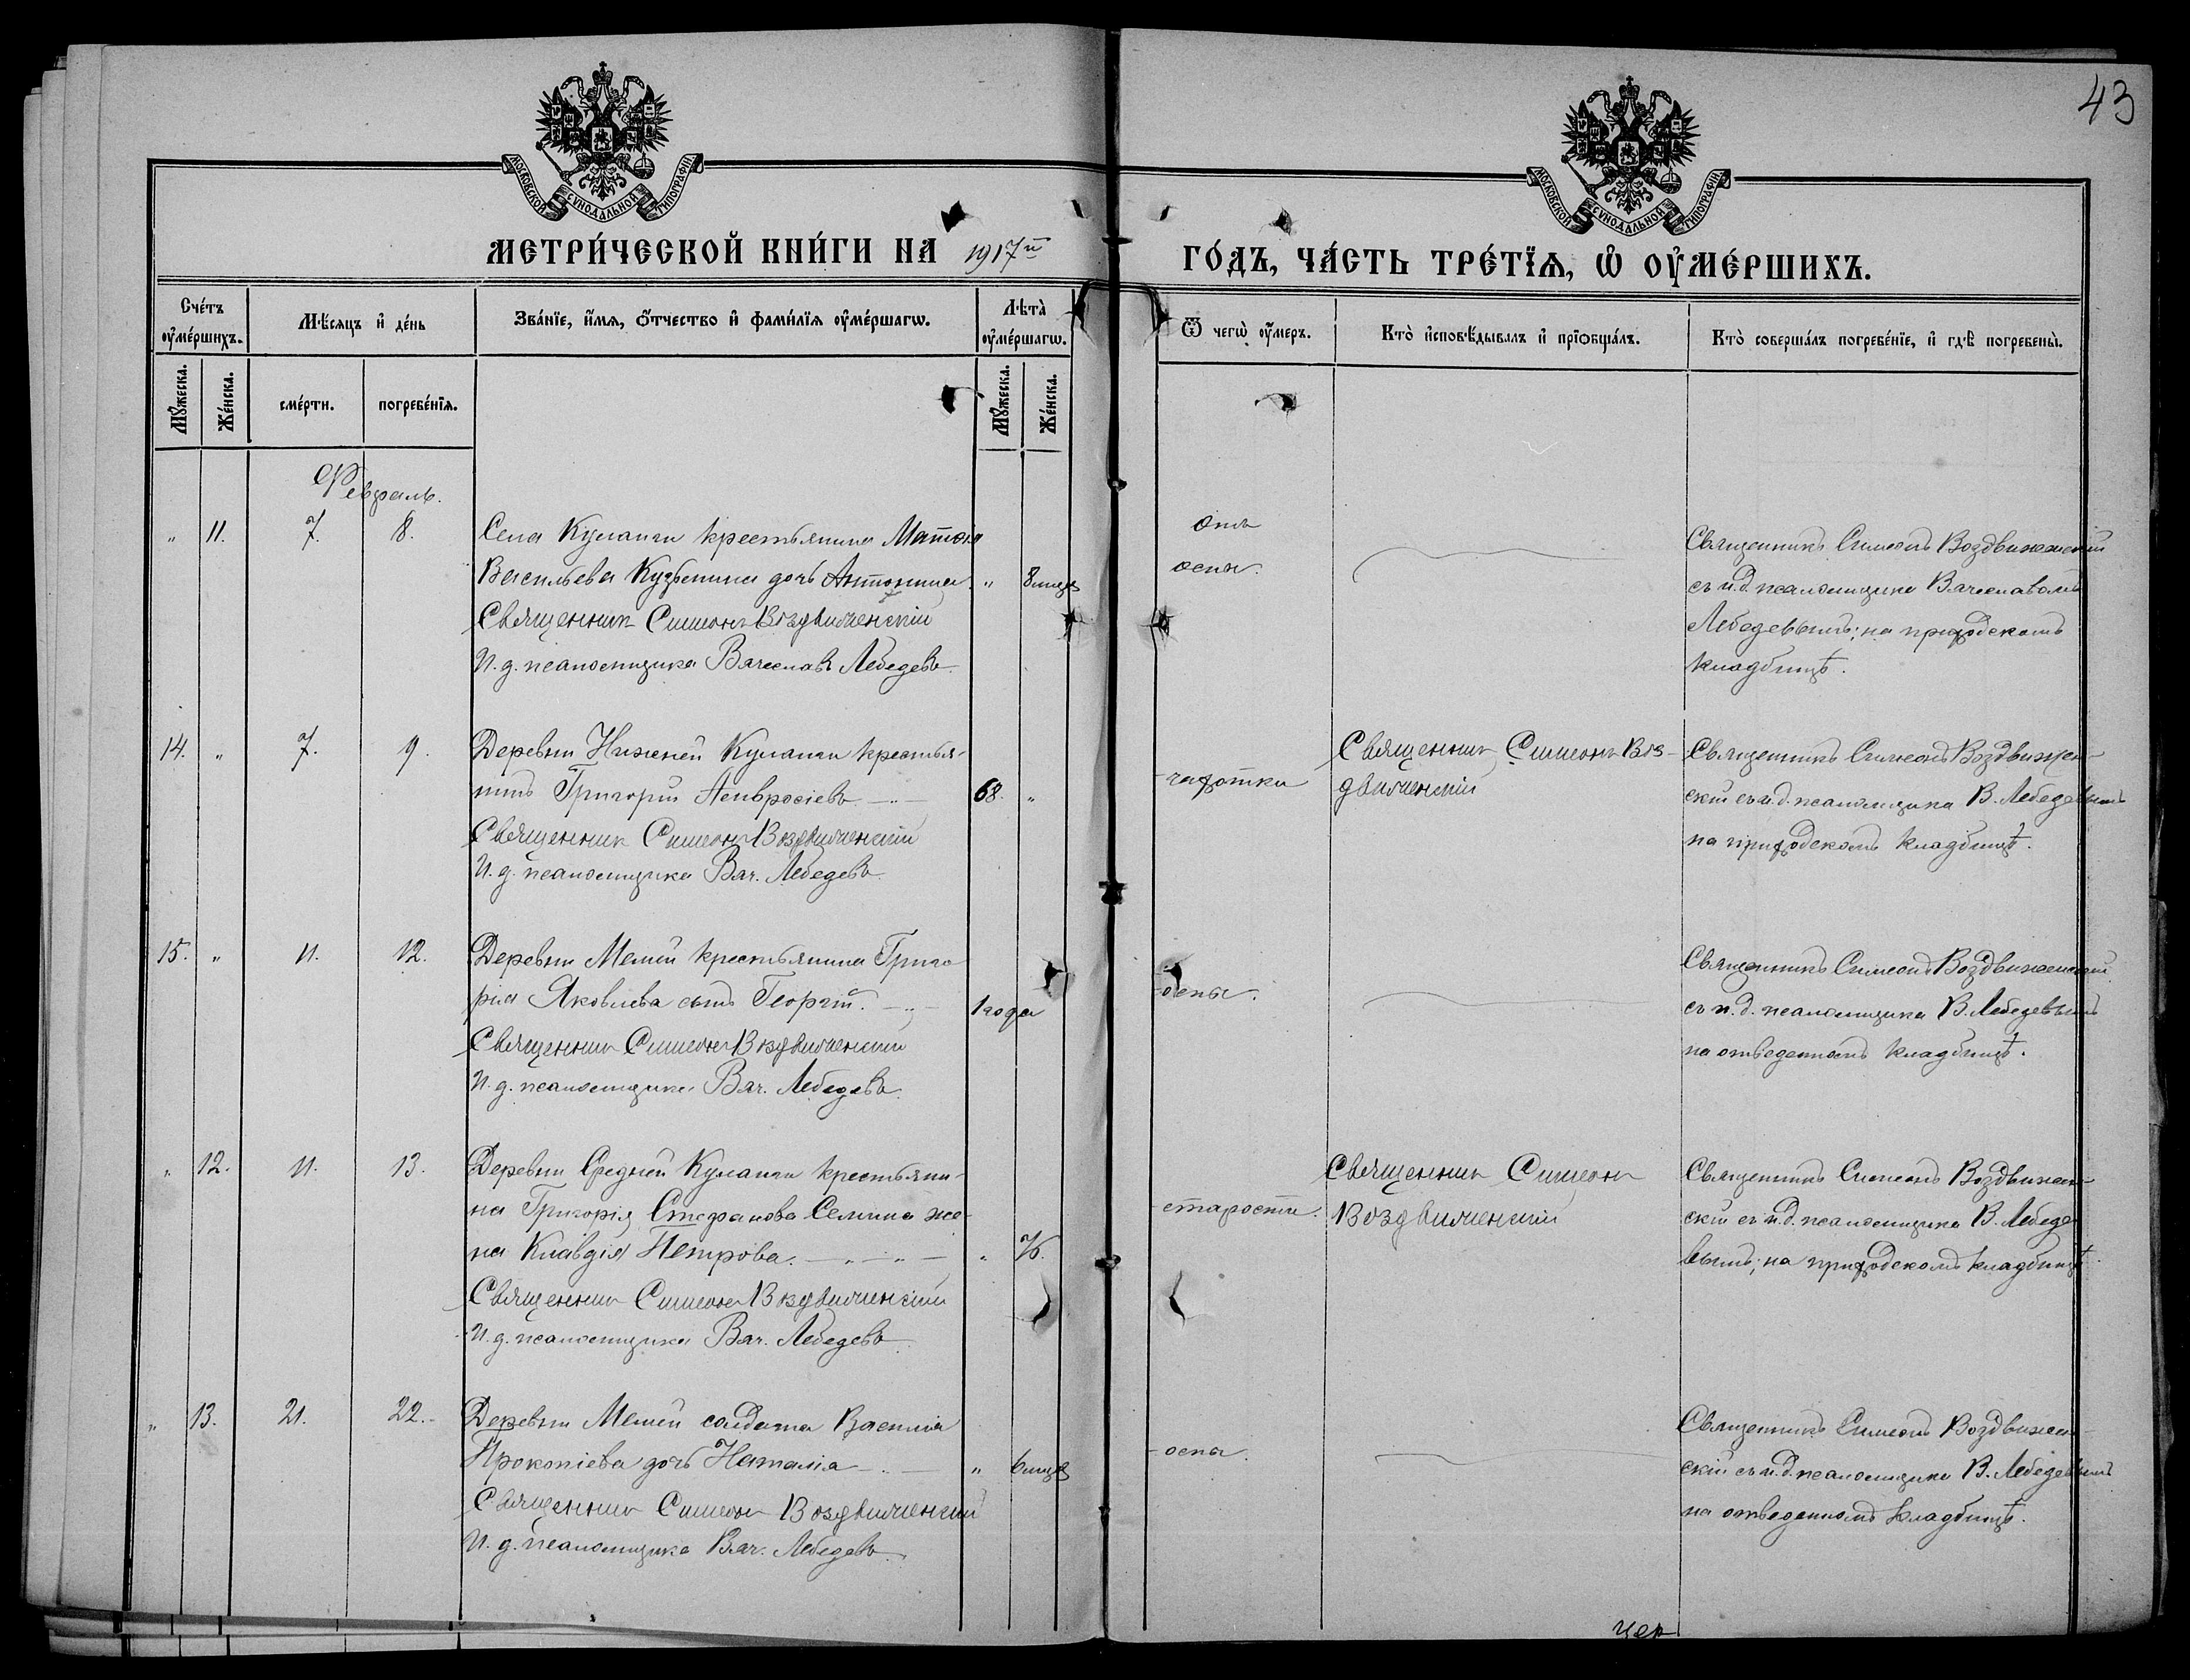 43
МОСКОВСКОЙ СѴНОДАЛЬНОЙ ТИПОГРАФІИ
МОСКОВСКОЙ СѴНОДАЛЬНОЙ ТИПОГРАФІИ
МЕТРИ́ЧЕСКОЙ КНИ́ГИ НА 1917й ГО́ДЪ, ЧА́СТЬ ТРЕ́ТЇѦ, Ѡ҆ ОУ҆МЕ́РШИХЪ.
Сче́тъ оу҆ме́ршихъ.
Мѣ́сѧцъ и҆ де́нь
Зва́нїе, и҆́мѧ, ѻ҆́тчество и҆ фами́лїѧ оу҆ме́ршагѡ.
Лѣта̀ оу҆ме́ршагѡ.
Ѿ чегѡ̀ оу҆́меръ.
Кто̀ и҆сповѣ́дывалъ и҆ прїѻбща́лъ.
Кто̀ соверша́лъ погребе́нїе, и҆ гдѣ̀ погребены̀.
Мꙋ́жеска.
Же́нска.
сме́рти.
погребе́нїѧ.
Мꙋ́жеска.
Же́нска.
Февраль.
" 11. 7. 8. Села Куланги крестьянина Матѳія
Васильева Кузьмина дочь Антонина " 8 мцев
Священник Симеон Воздвиженскій
И. д. псаломщика Вячеслав Лебедевъ
Отъ
оспы.
Священникъ Симеонъ Воздвиженскій
съ и.д. псаломщика Вячеславомъ
Лебедевымъ; на приходскомъ
кладбищѣ.
14. " 7. 9. Деревни Нижней Куланги крестья-
нинъ Григорій Амвросіевъ 68. "
Священник Симеон Воздвиженскій
И. д. псаломщика Вяч. Лебедевъ
чахотки
Священник Симеон Воз-
движенскій
Священникъ Симеонъ Воздвижен-
скій съ и.д. псаломщика В. Лебедевымъ
на приходскомъ кладбищѣ.
15. " 11. 12. Деревни Мемей крестьянина Григо
рія Яковлева сынъ Георгій. 1 года
Священник Симеон Воздвиженскій
И. д. псаломщика Вяч. Лебедевъ.
оспы.
Священникъ Симеонъ Воздвиженский
съ и. д. псаломщика В. Лебедевымъ
на отведенномъ кладбищѣ.
" 12. 11. 13. Деревни Средней Куланги крестьяни-
на Григорія Стефанова Семина же-
на Клавдія Петрова. "
Священник Симеон Воздвиженскій
И. д. псаломщика Вяч. Лебедевъ
старости.
Священник Симеон
Воздвиженскій
Священникъ Симеонъ Воздвижен-
скій съ и.д. псаломщика В. Лебеде
вымъ; на приходскомъ кладбищѣ
" 13. 21. 22. Деревни Мемей солдата Василія
Прокопіева дочь Наталія " 6 мцев
Священник Симеон Воздвиженскій
И. д. псаломщика Вяч. Лебедевъ.
оспы.
Священникъ Симеонъ Воздвижен-
скій съ и.д. псаломщика В. Лебедевымъ
на отведенномъ кладбищѣ.
цер